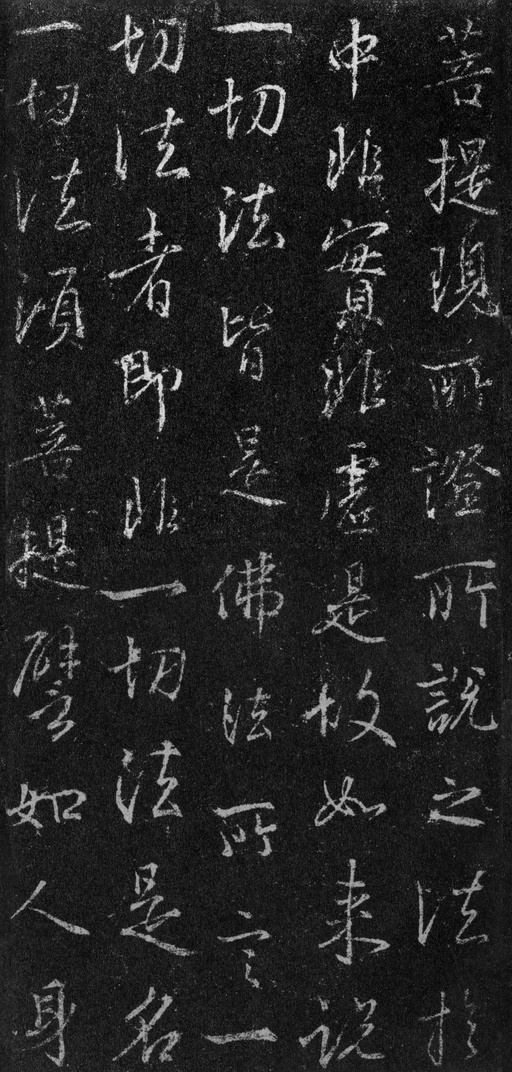 菩提現所證所說之法於
中非實非虛是故如来說
一切法皆是佛法所言一
切法者即非一切法是名
一切法須菩提譬如人身